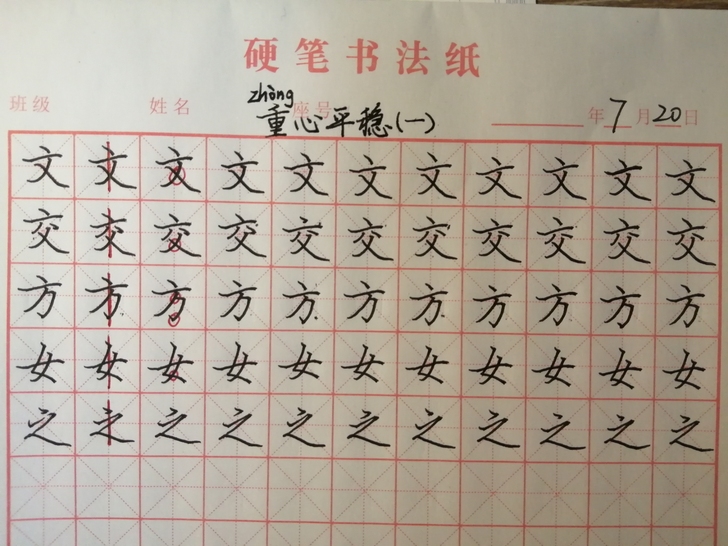 硬笔书法纸
班级 姓名 座号 年7月20日
zhòng
重心平稳(一)
文文文文文文文文文文文
交交交交交交交交交交交
方方方方方方方方方方方
女女女女女女女女女女女
之之之之之之之之之之之